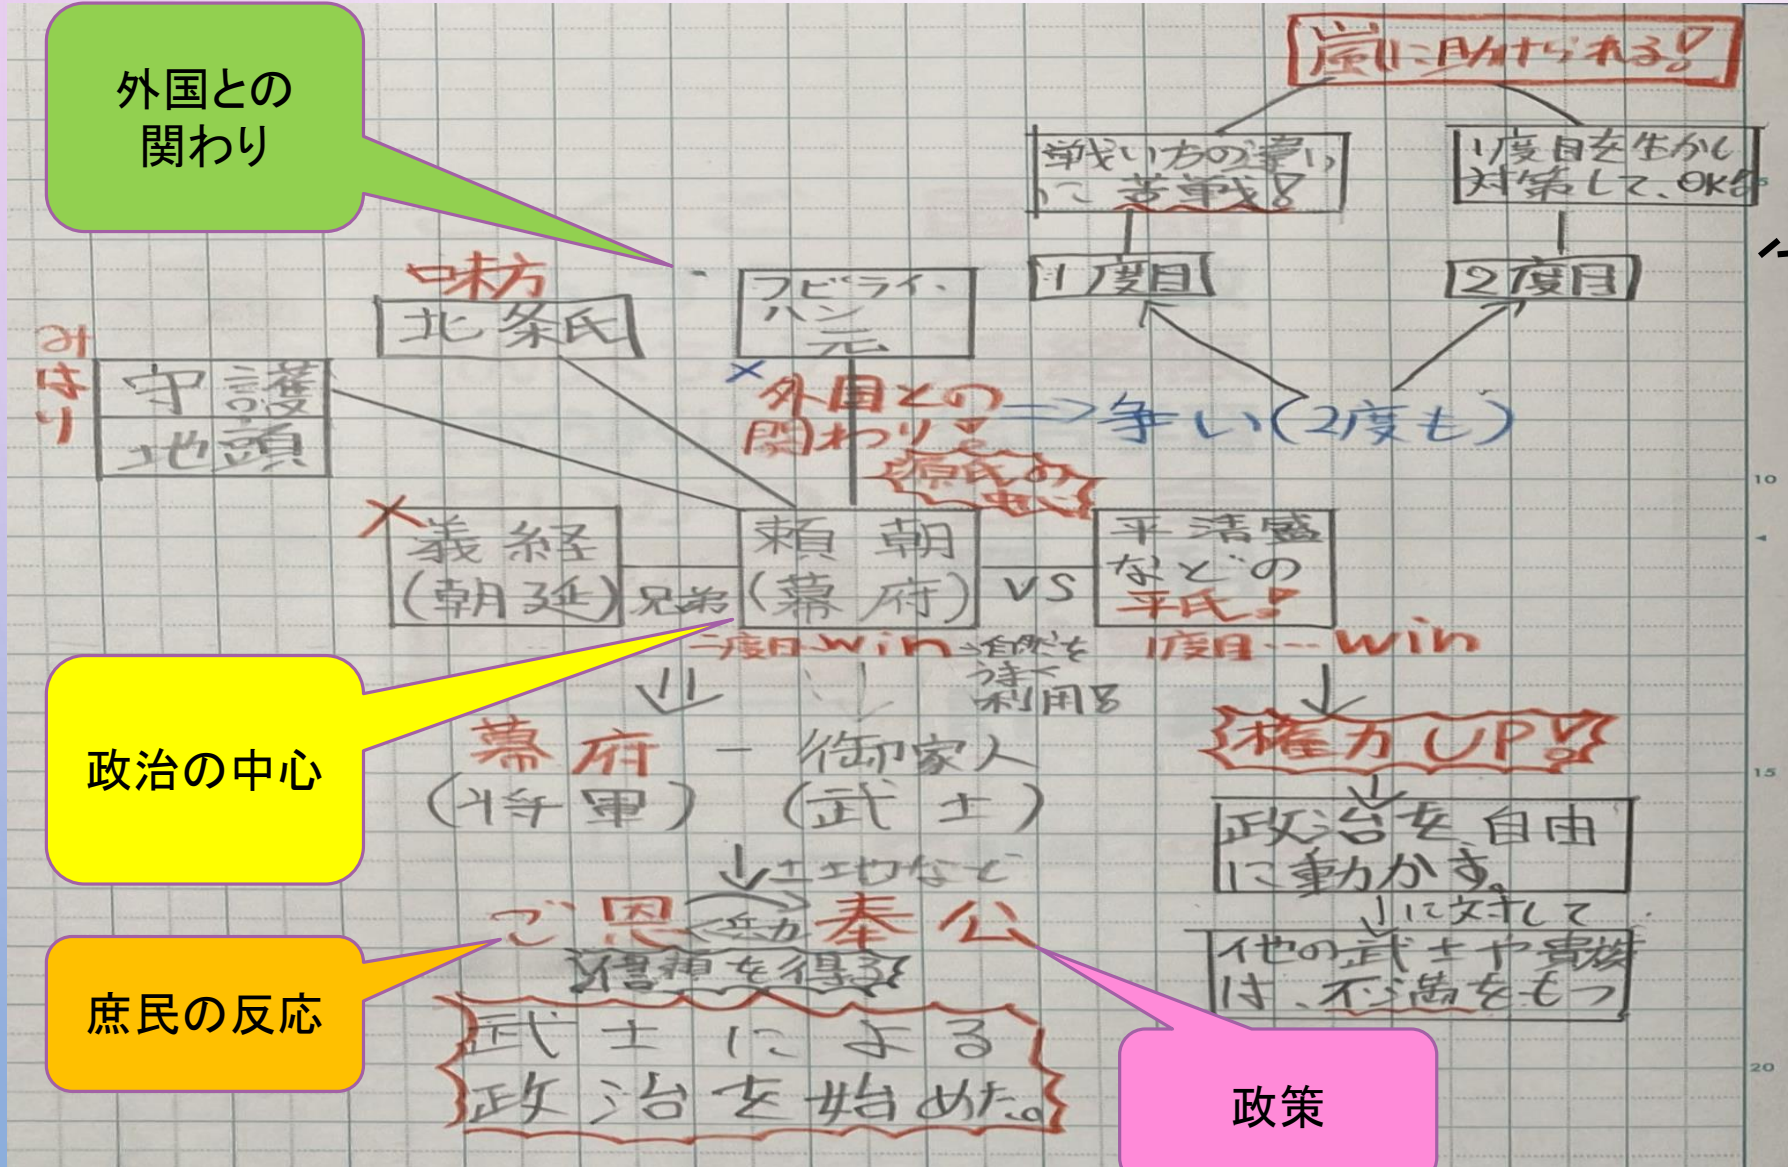 外国との
関わり
嵐に助けられる!
戦い方の違い
に苦戦!
1度目を生かし
対策して、OK!
1度目
2度目
味方
北条氏
フビライ・
ハン
元
みはり
守護
地頭
外国との
関わり!
⇒争い(2度も)
源氏の
×義経
(朝廷)
兄弟
頼朝
(幕府)
VS
平清盛
などの
平氏!
二度目 win
→自然を
うまく
利用!
1度目…win
政治の中心
幕府 - 御家人
(将軍) (武士)
権力UP!
政治を自由
に動かす。
↓土地など
ご恩 奉公
信頼を得る
↓に対して
他の武士や貴族
は、不満をもつ
庶民の反応
武士による
政治を始めた。
政策
10
15
20